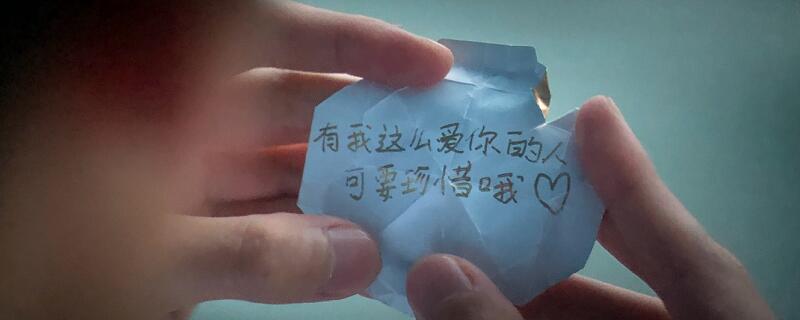 有我这么爱你的人
可要珍惜哦♡